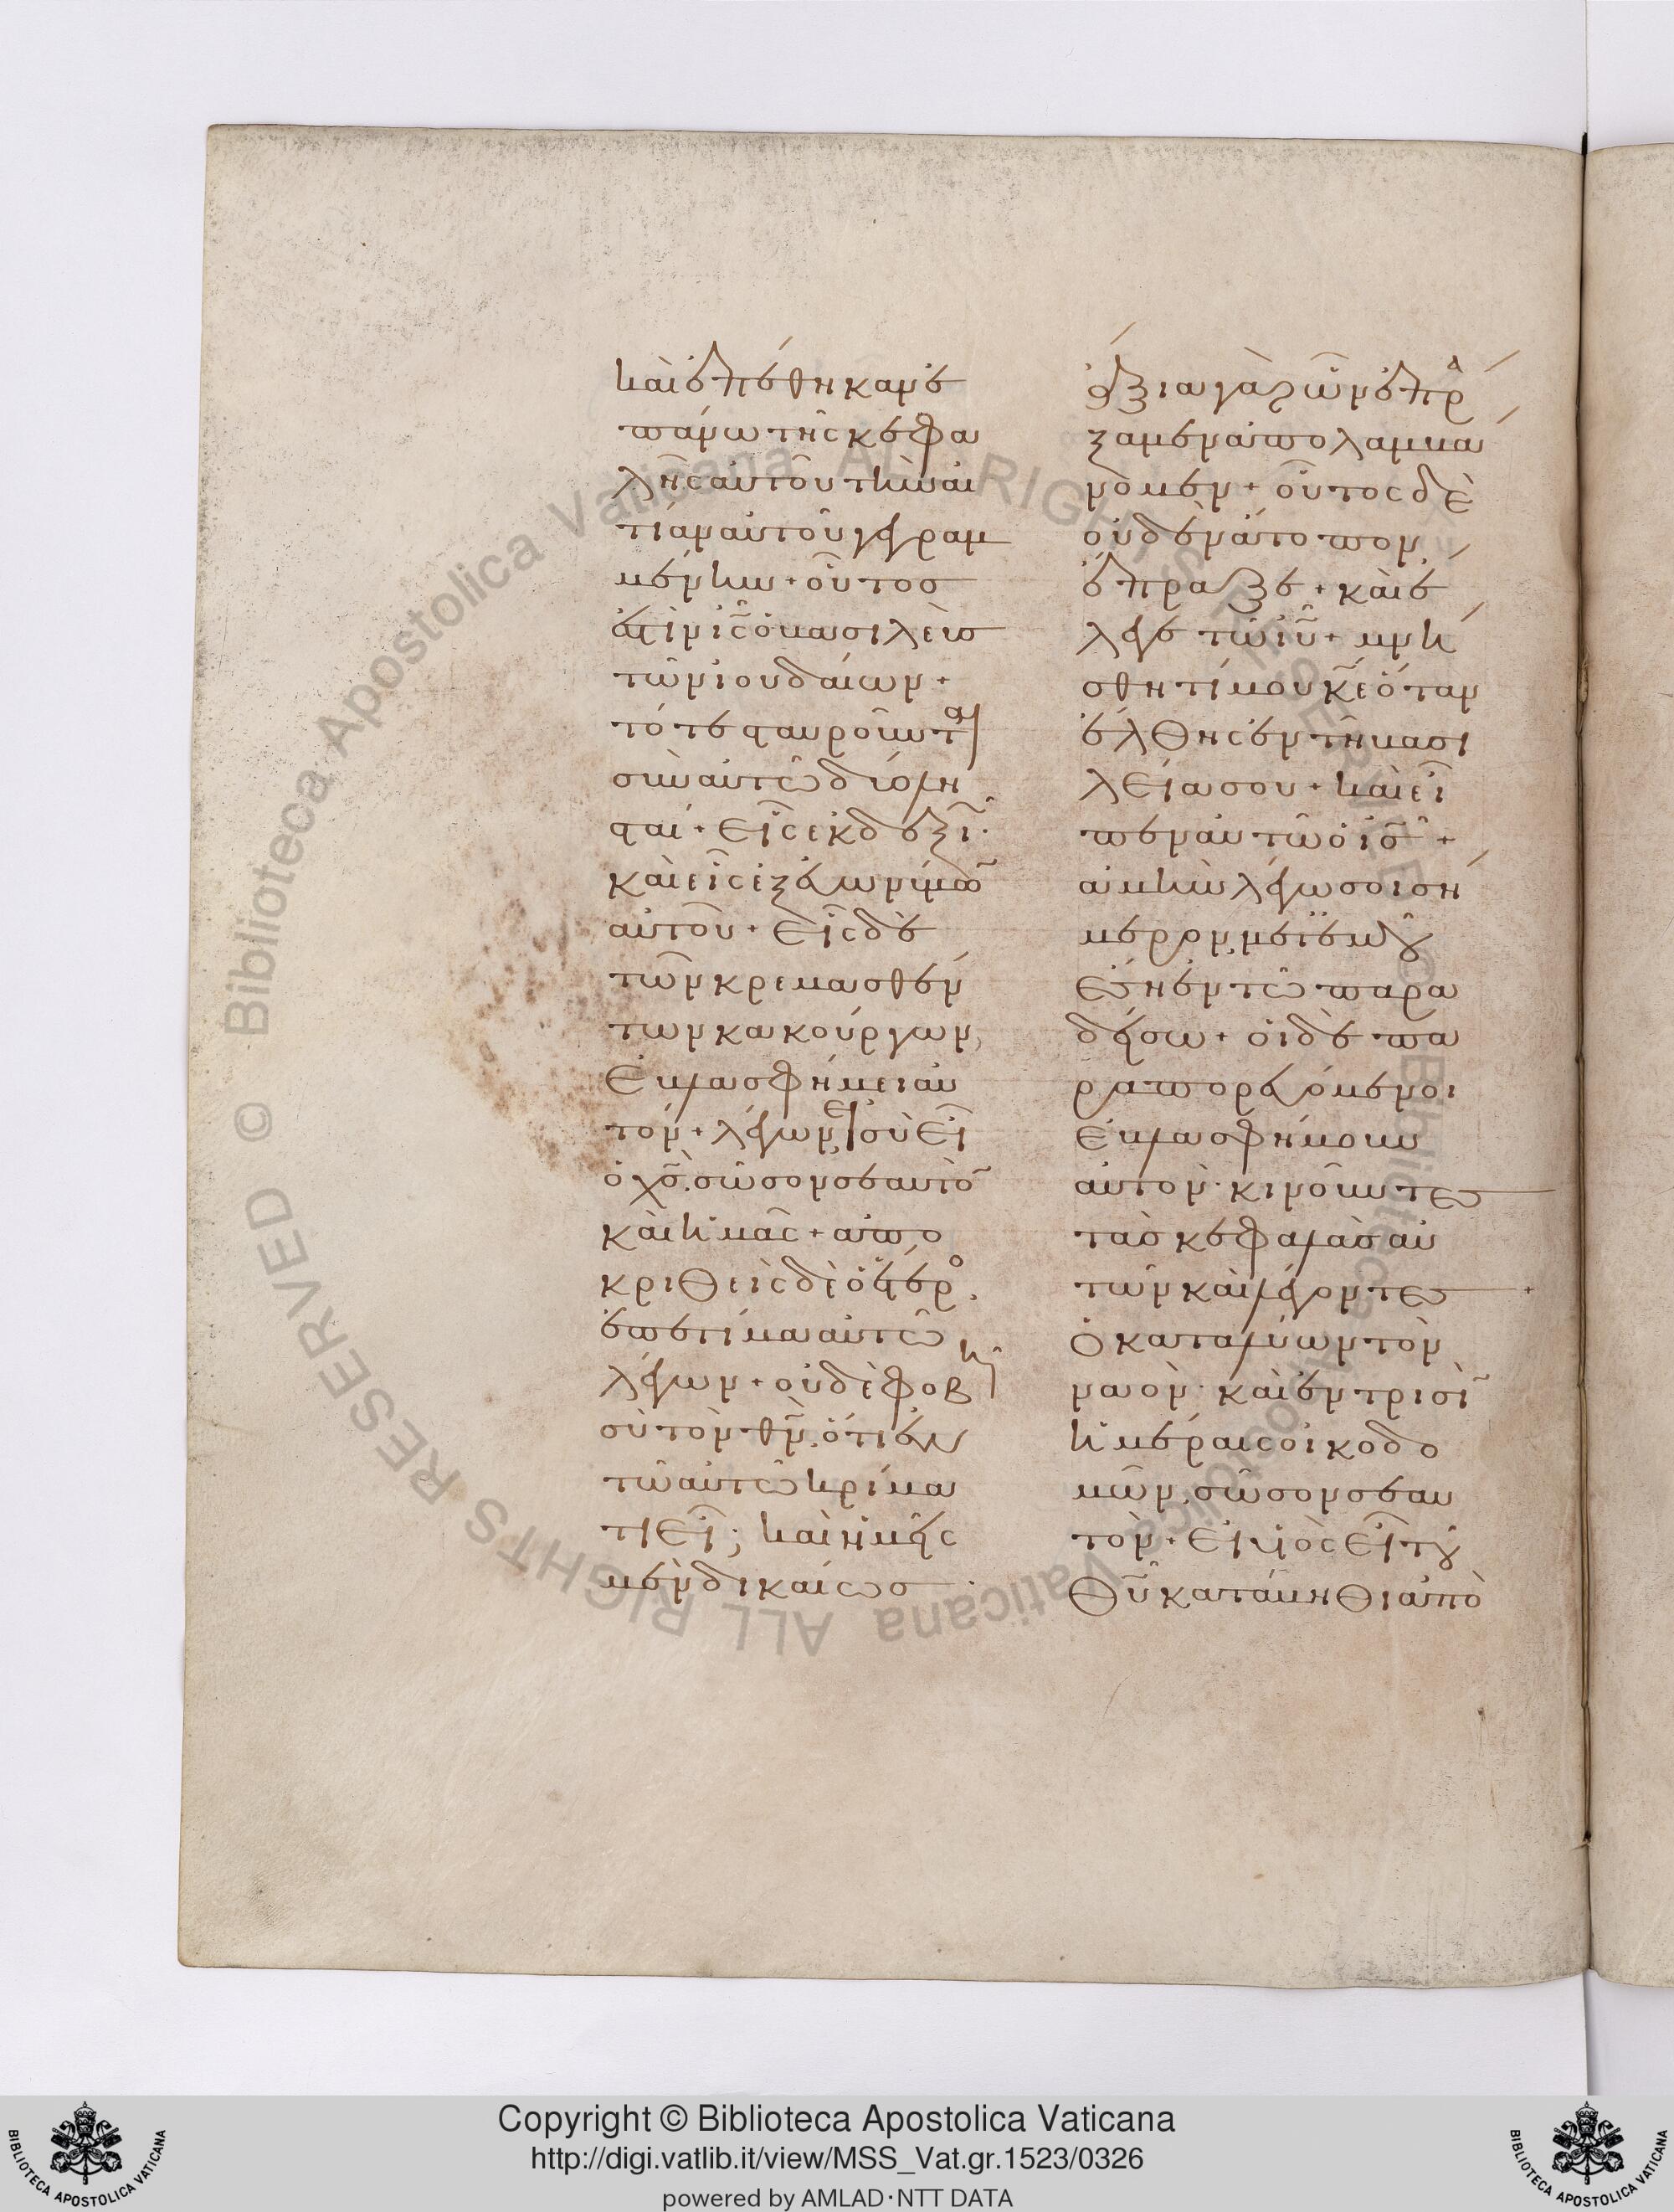 καὶ ἐπέθηκαν ἐ
πάνω τῆς κεφα
λῆς αὐτοῦ τὴν αἰ
τίαν αὐτοῦ γεγραμ
μένην + οὗτος
ἐστὶν ἰς ὁ βασιλεὺς
τῶν ἰουδαίων +
τότε σταυροῦνται
σὺν αὐτῶ δύο λη
σταί + εἷς ἐκ δεξι
καὶ εἷς ἐξ εὐωνύμων
αὐτοῦ + εἷς δὲ
τῶν κρεμασθέν
των κακούργων,
ἐβλασφήμει αὐ
τόν + λέγων, εἰ σὺ εἶ
ὁ χς. σῶσον σεαυτὸ
καὶ ἡμᾶς + ἀπο
κριθεὶς δὲ ὁ ἕτερο
ἐπετίμα αὐτῶ
λέγων + οὐδὲ φοβῆ
σὺ τὸν θν, ὅτι ἐν
τῶ αὐτῶ κρίμα
τι εἶ; καὶ ἡμεῖς
μὲν δικαίως
ἄξια γὰρ ὧν ἐπρά
ξαμεν ἀπολαμβά
νομεν + οὗτος δὲ
οὐδὲν ἄτοπον
ἔπραξε + καὶ ἔ
λεγε τῶ ιυ + μνή
σθητί μου κε ὅταν
ἔλθης ἐν τῆ βασι
λεία σου + καὶ εἶ
πεν αὐτῶ ὁ ις +
ἀμὴν λέγω σοι σή
μερον, μετ ἐμοῦ
ἔση ἐν τῶ παρα
δείσω + οἱ δὲ πα
ραπορευόμενοι
ἐβλασφήμουν
αὐτον· κινοῦντες
τὰς κεφαλὰς αὐ
τῶν καὶ λέγοντες +
Ὁ καταλύων τὸν
ναὸν· καὶ ἐν τρισὶ
ἡμέραις οἰκοδο
μῶν, σῶσον σεαυ
τὸν + εἰ υἱὸς εἶ τοῦ
θυ κατάβηθι ἀπὸ
Copyright © Biblioteca Apostolica Vaticana
http://digi.vatlib.it/view/MSS_Vat.gr.1523/0326
powered by AMLAD·NTT DATA
BIBLIOTECA APOSTOLICA VATICANA
BIBLIOTECA APOSTOLICA VATICANA
© Biblioteca Apostolica Vaticana ALL RIGHTS RESERVED
© Biblioteca Apostolica Vaticana ALL RIGHTS RESERVED